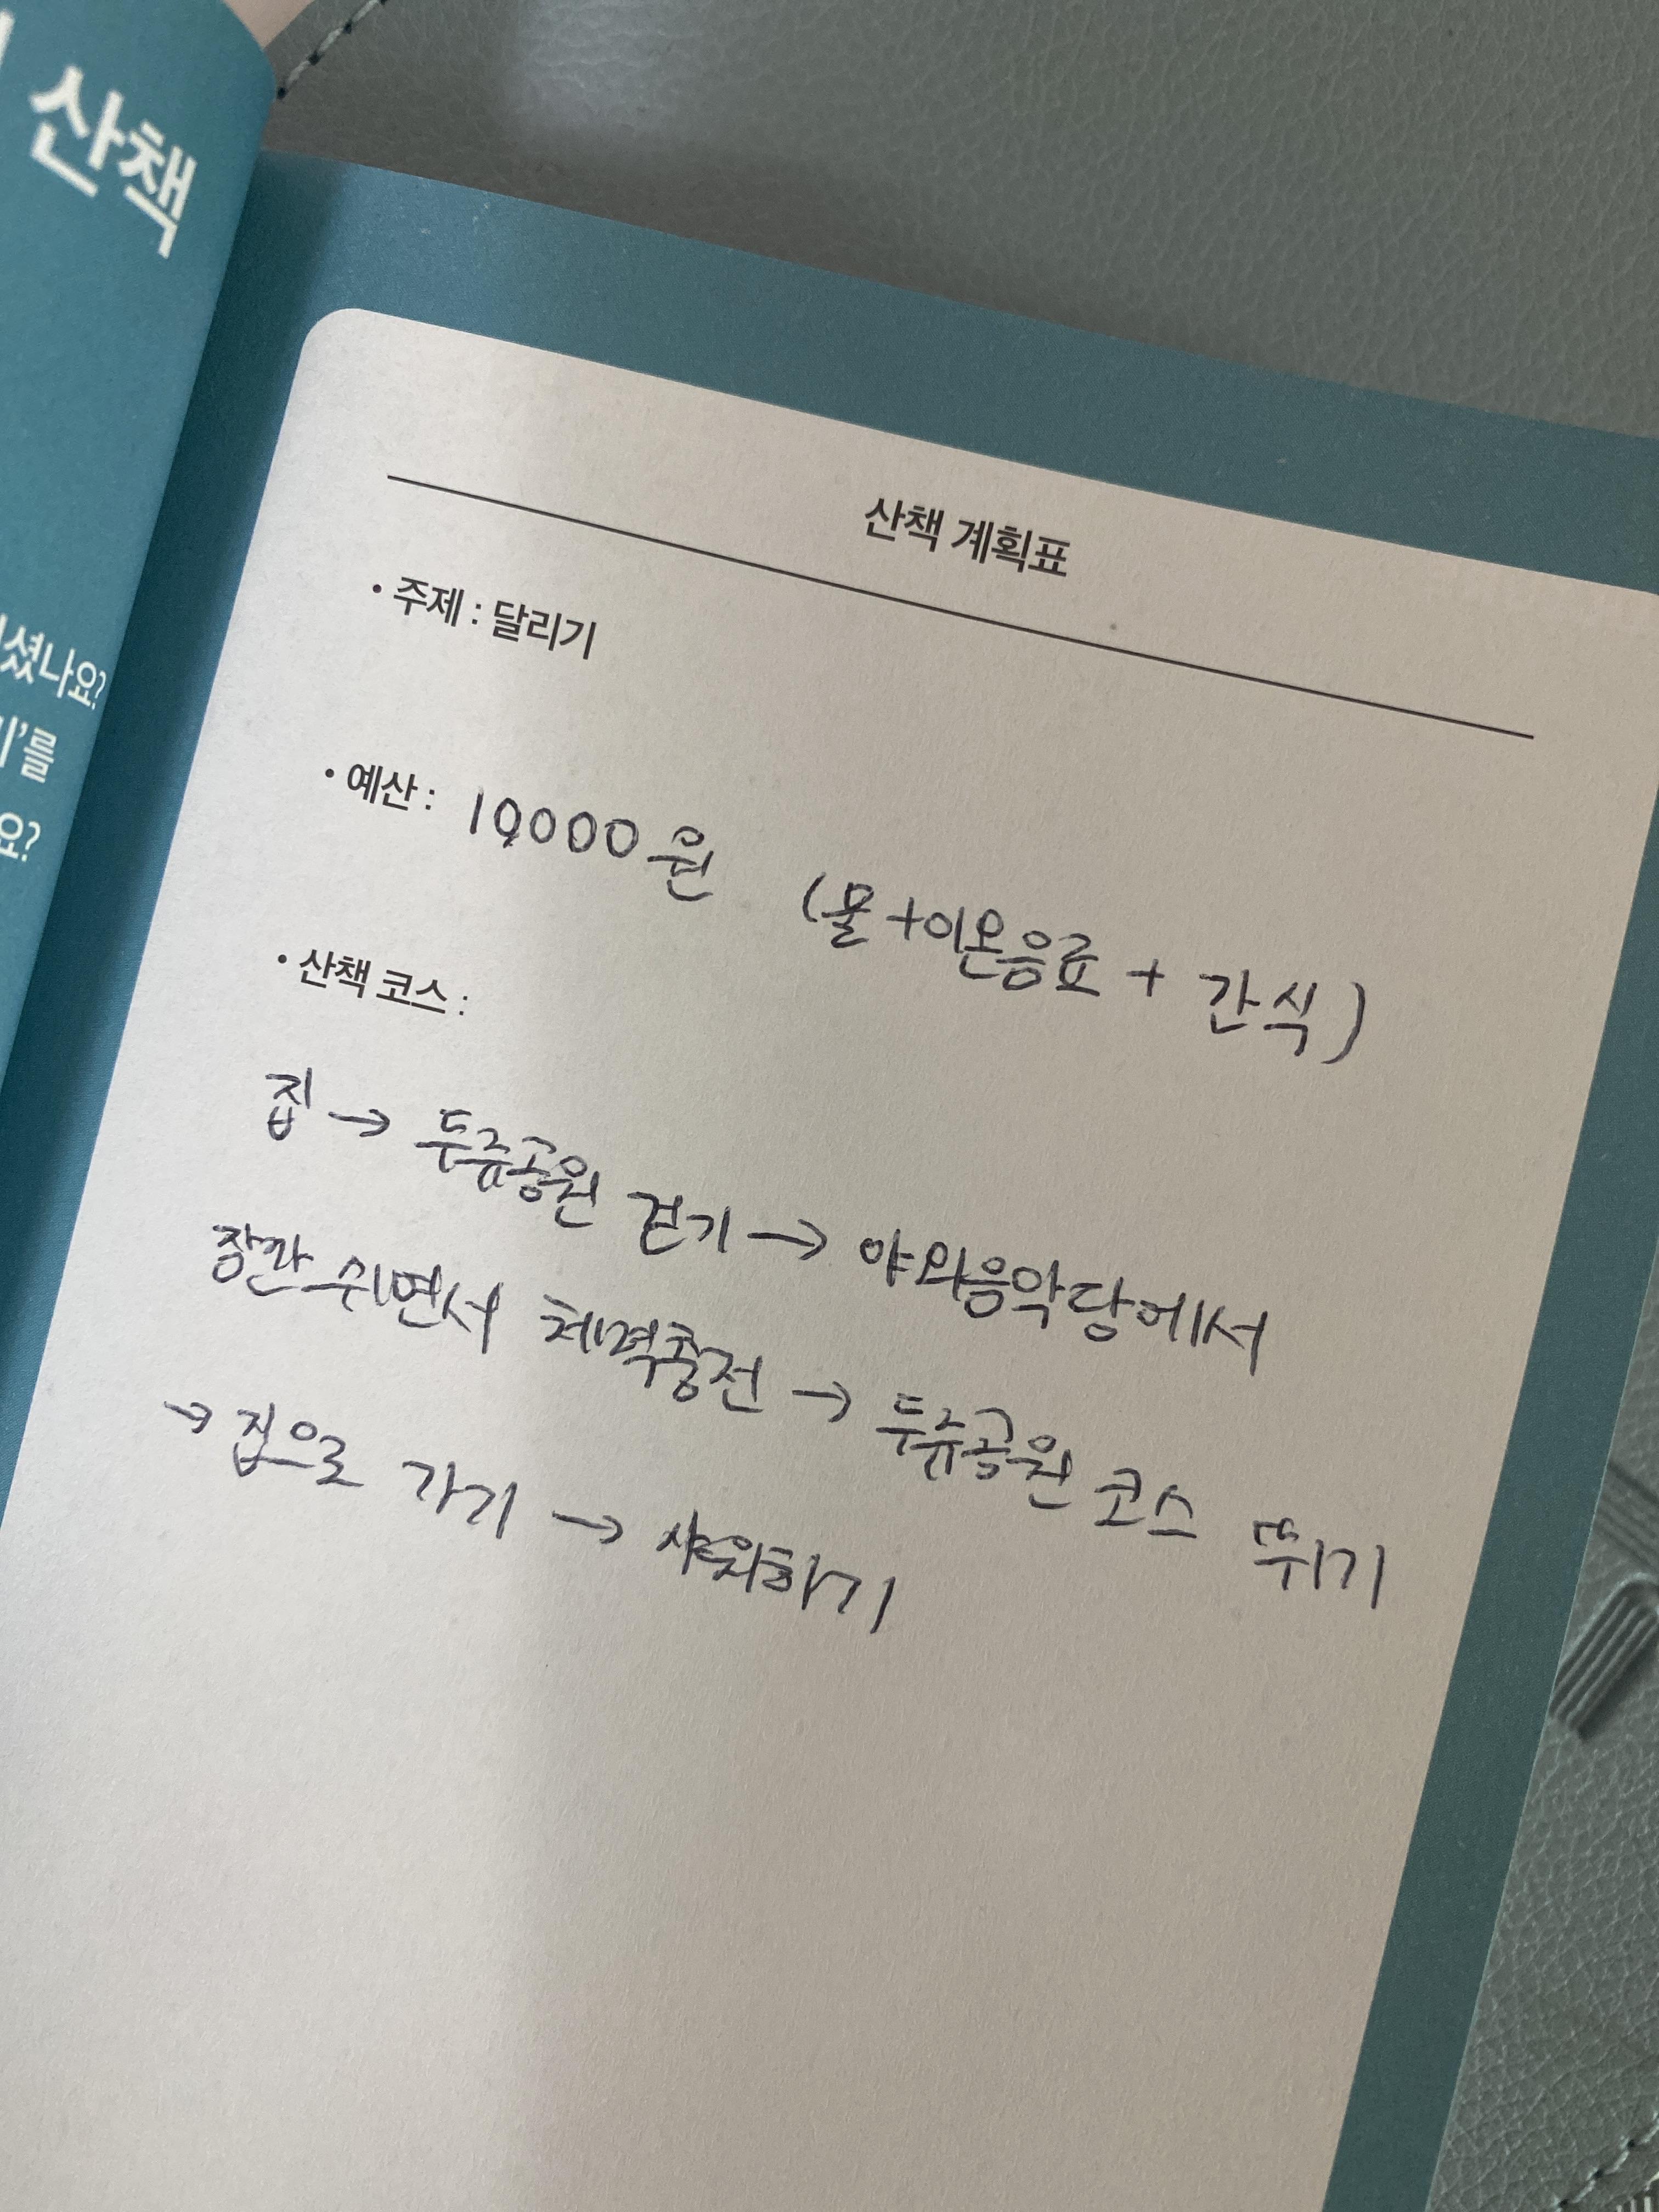 산책
셨나요?
'를
요?
산책 계획표
• 주제 : 달리기
• 예산 : 10,000원 (물+이온음료 + 간식)
• 산책 코스 :
집 → 두류공원 걷기 → 야외음악당에서
잠깐 쉬면서 체력충전 → 두류공원 코스 뛰기
→ 집으로 가기 → 샤워하기